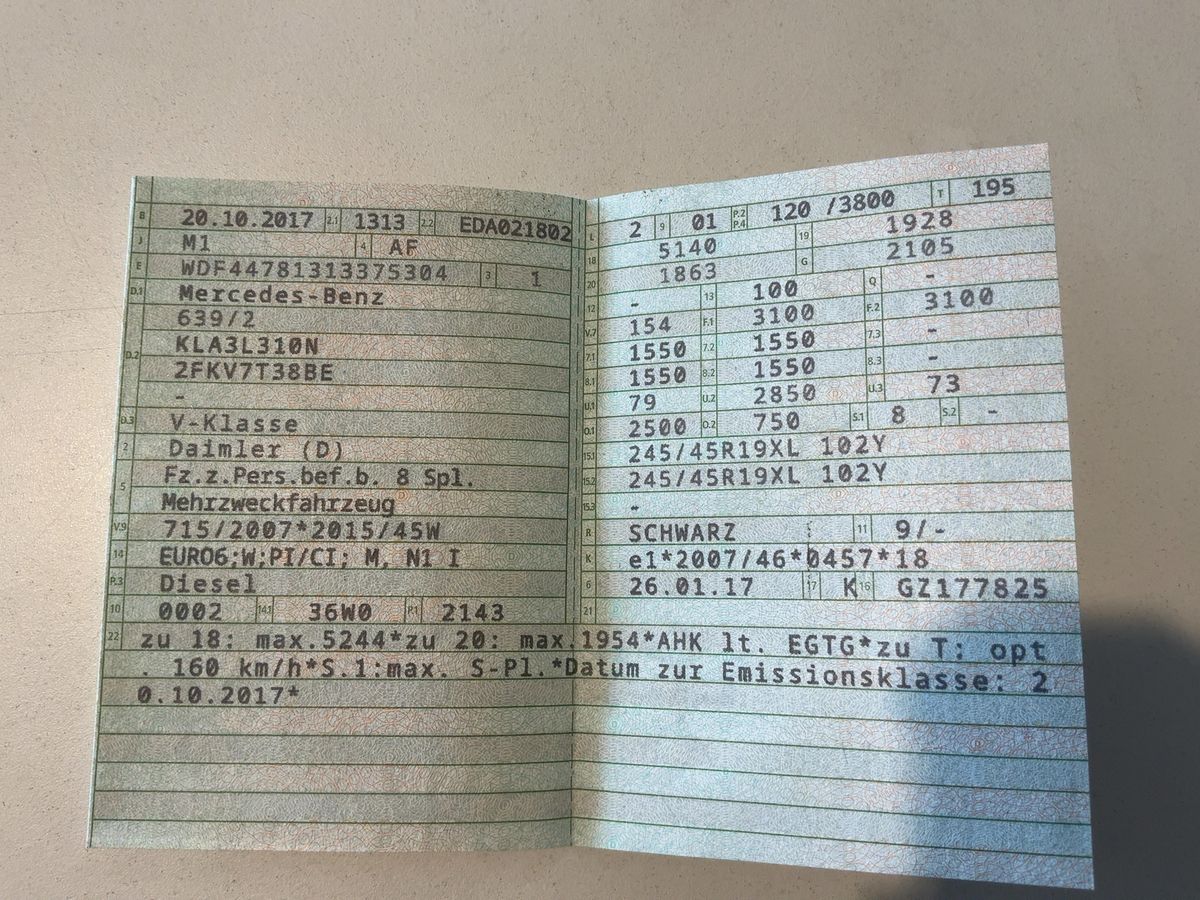 B 20.10.2017 2.1 1313 2.2 EDA021802
J M1 4 AF
E WDF44781313375304 3 1
D.1 Mercedes-Benz
639/2
D.2 KLA3L310N
2FKV7T38BE
-
D.3 V-Klasse
2 Daimler (D)
5 Fz.z.Pers.bef.b. 8 Spl.
Mehrzweckfahrzeug
V.9 715/2007*2015/45W
14 EURO6;W;PI/CI; M, N1 I
P.3 Diesel
10 0002 14.1 36W0 P.1 2143
L 2 9 01 P.2 P.4 120 /3800 T 195
18 5140 19 1928
20 1863 G 2105
12 - 13 100 Q -
V.7 154 F.1 3100 F.2 3100
7.1 1550 7.2 1550 7.3 -
8.1 1550 8.2 1550 8.3 -
U.1 79 U.2 2850 U.3 73
O.1 2500 O.2 750 S.1 8 S.2 -
15.1 245/45R19XL 102Y
15.2 245/45R19XL 102Y
15.3 -
R SCHWARZ 11 9/-
K e1*2007/46*0457*18
6 26.01.17 17 K 16 GZ177825
21
22 zu 18: max.5244*zu 20: max.1954*AHK lt. EGTG*zu T: opt
. 160 km/h*S.1:max. S-Pl.*Datum zur Emissionsklasse: 2
0.10.2017*